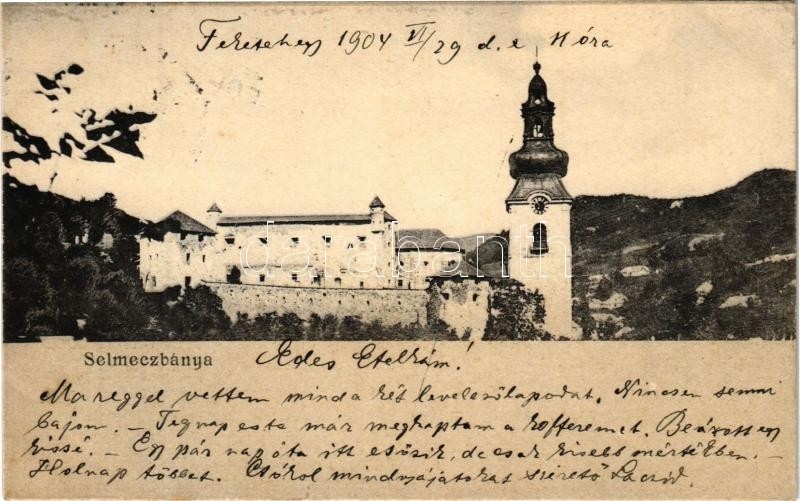 Feketehegy 1904 VI/29 d. e. 11 óra
darabanth
Selmeczbánya
Édes Etelkám!
Ma reggel vettem mind a két levelezőlapodat. Nincsen semmi
bajom. - Tegnap este már megkaptam a kofferemet. Beázott egy
kissé. - Egy pár nap óta itt esőzik, de csak kisebb mértékben. -
Holnap többet. Csókol mindnyájatokat szerető Laczid.